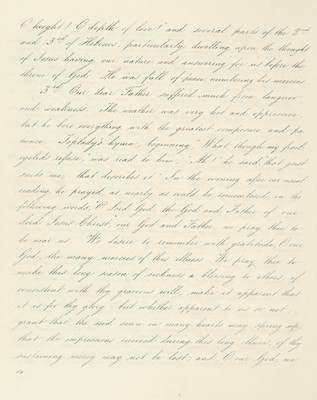 O height! O depth of love!" and several parts of the 2nd
and 3rd of Hebrews, particularly dwelling upon the thought
of Jesus having our nature and answering for us before the
throne of God. He was full of peace, numbering his mercies
3rd Our dear Father suffered much from langour
and weakness. The weather was very hot and oppressive,
but he bore everything with the greatest composure and pa
tience. Toplady's hymn, beginning "What though my frail
eyelids refuse, was read to him; "Ah!" he said "that just
suits me, that describes it" In the evening after our usual
reading he prayed, as nearly as could be remembered, in the
following words, "O Lord God, the God and Father of our
Lord Jesus Christ, our God and Father, we pray thee to
be near us. We desire to remember with gratitude, O our
God, the many mercies of this illness. We pray thee to
make this long season of sickness a blessing to others, if
consistent with thy gracious will, make it apparent that
it is for thy glory; but whether apparent to us or not,
grant that the seed sown in many hearts may spring up
that the impressions received during this long illness, of thy
sustaining mercy may not be lost; and, O our God, we